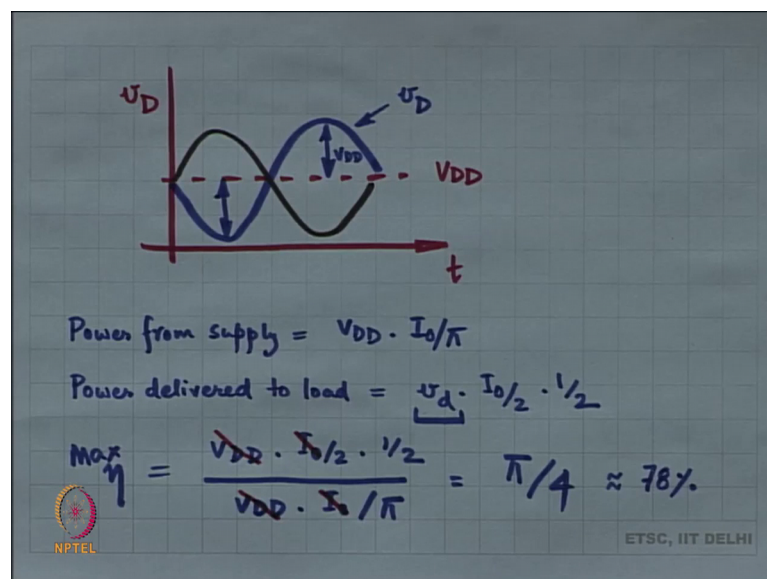 υD
υD
VDD
VDD
t
Power from supply = VDD · I0/π
Power delivered to load = υd · I0/2 · 1/2
max η = VDD · I0/2 · 1/2 / VDD · I0/π = π/4 ≈ 78%.
NPTEL
ETSC, IIT DELHI